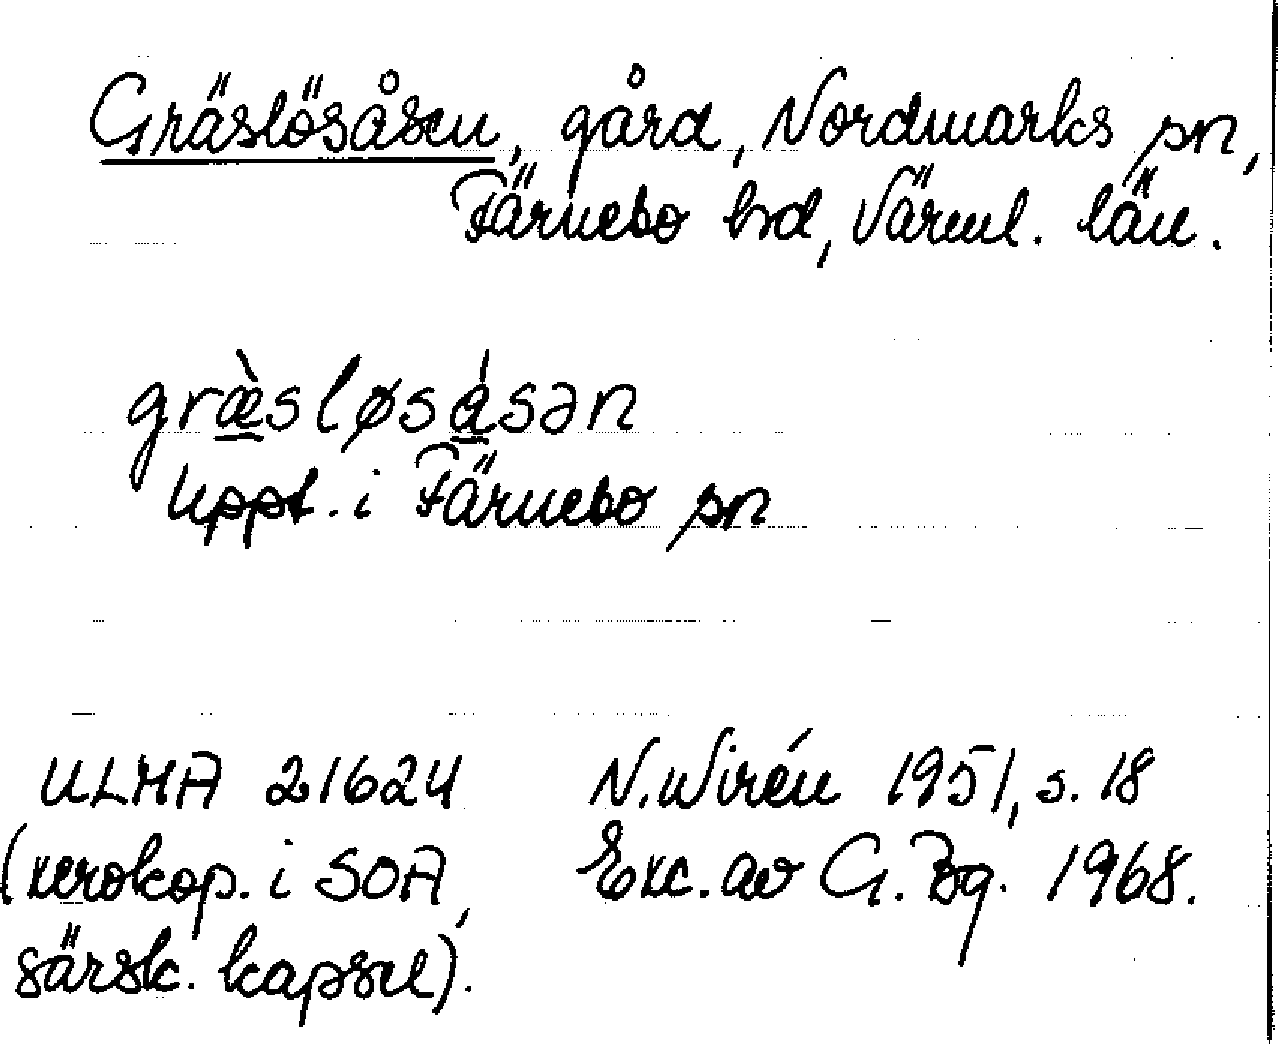 Gräslösåsen, gård, Nordmarks sn,
Färnebo hd, Värml. län.
græ̀sløsåsən
Uppt. i Färnebo sn
ULMA 21624 N. Wirén 1951, s. 18
(xerokop. i SOA, Exc. av G. Bg. 1968.
särsk. kapsel).